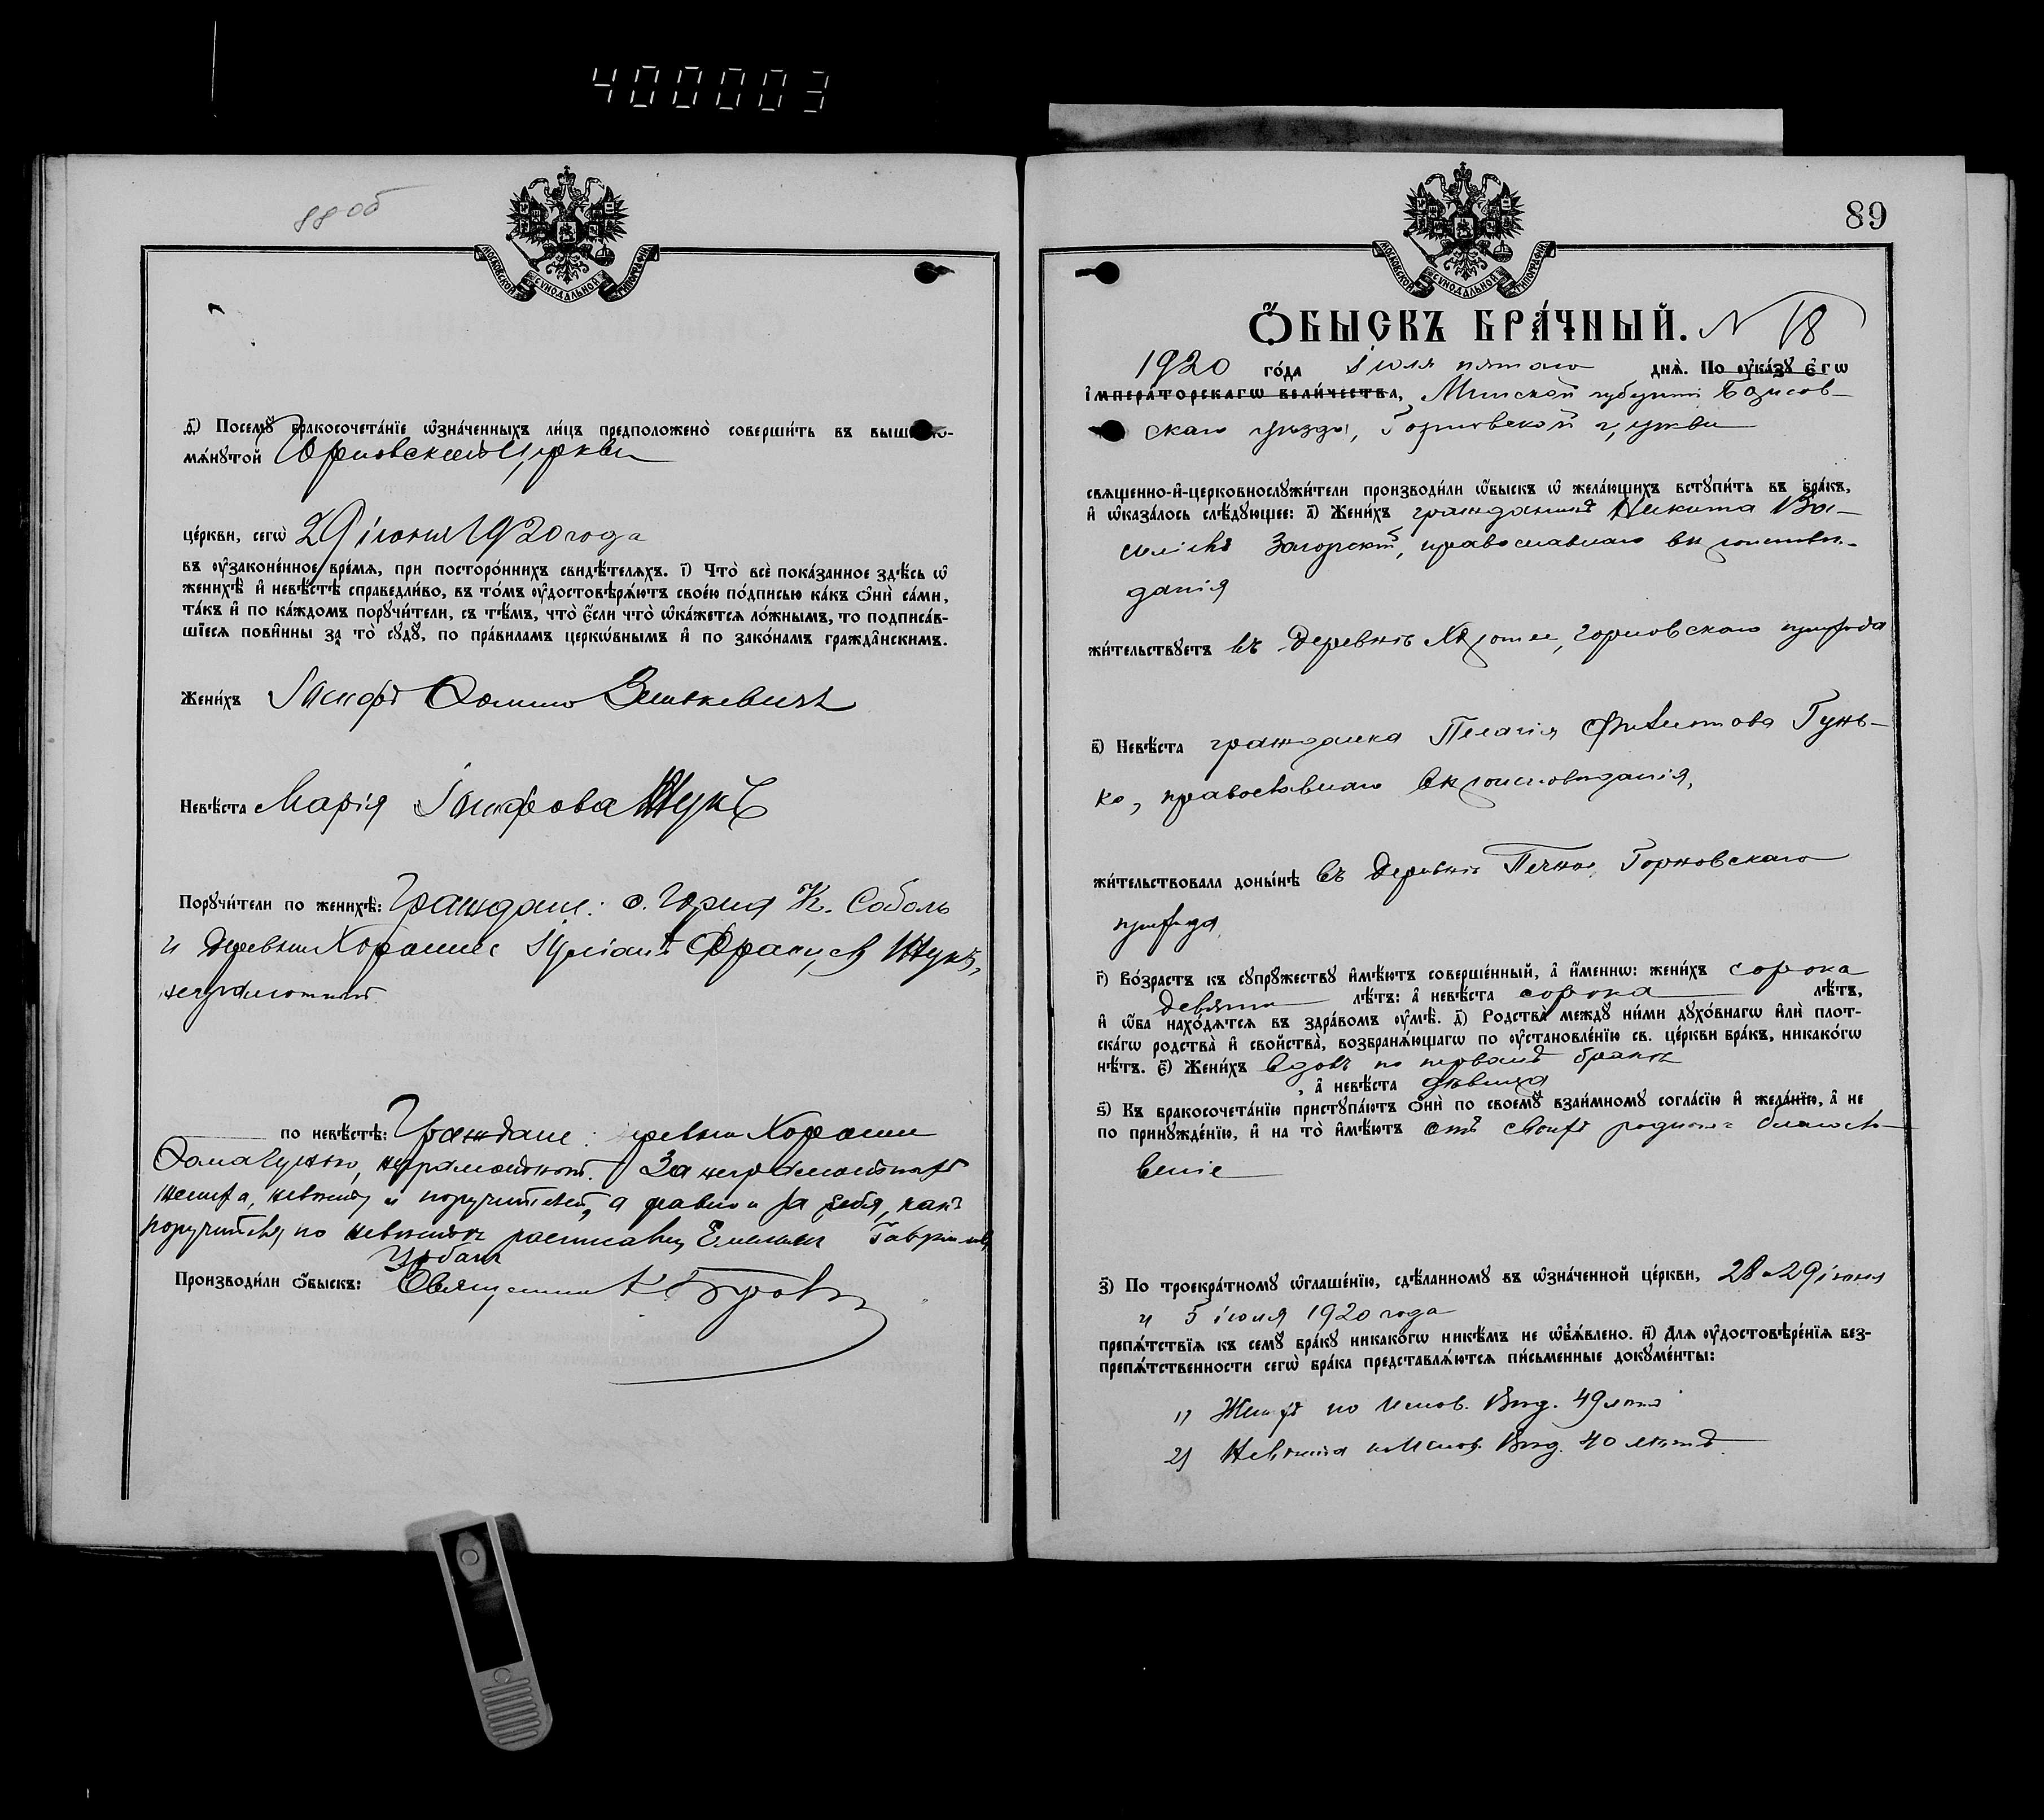 400003
88 об
МОСКОВСКОЙ СѴНОДАЛЬНОЙ ТИПОГРАФІИ
ѳ҃) Посемꙋ̀ бракосочета́нїе ѡ҆зна́ченныхъ ли́цъ предположено̀ соверши́ть въ вышеꙋпо-
мѧ́нꙋтой Юрновской церкви
це́ркви, сегѡ̀ 29 іюня 1920 года
въ ᲂу҆зако́ненное вре́мѧ, при посторо́ннихъ свидѣ́телѧхъ. і҃) Что̀ всѐ пока́занное здѣ́сь ѡ҆
женихѣ̀ и҆ невѣ́стѣ справедли́во, въ то́мъ ᲂу҆достовѣрѧ́ютъ свое́ю по́дписью ка́къ ѻ҆нѝ са́ми,
та́къ и҆ по ка́ждомъ порꙋчи́тели, съ тѣ́мъ, что̀ є҆́сли что̀ ѡ҆ка́жетсѧ ло́жнымъ, то подписа́в-
шїесѧ пови́нны за то̀ сꙋдꙋ̀, по пра́виламъ церко́внымъ и҆ по зако́намъ гражда́нскимъ.
Жени́хъ Іосифъ Ѳомино
Невѣ́ста Марія Іосифова Жукъ
Порꙋчи́тели по женихѣ̀: Граждане: с. Горна К. Соболь
и деревни Іуліанъ Францевъ Жукъ,
неграмотный.
по невѣ́стѣ: Граждане: деревни
неграмотный. За неграмотныхъ
жениха, невѣсту и поручителей, а равно и за себя, какъ
поручитель по невѣстѣ росписался Емельян Гаврилов
Урбан
Производи́ли ѻ҆́быскъ: Священникъ
89
МОСКОВСКОЙ СѴНОДАЛЬНОЙ ТИПОГРАФІИ
Ѻ҆́БЫСКЪ БРА́ЧНЫЙ. N 18
1920 го́да Іюля пятаго днѧ̀. По ᲂу҆ка́зꙋ є҆гѡ̀
і҆мпера́торскагѡ вели́чества, Минской губерніи Борисов-
скаго уѣзда, Горновской церкви
свѧщенно-и҆-церковнослꙋжи́тели производи́ли ѻ҆́быскъ ѡ҆ жела́ющихъ встꙋпи́ть въ бра́къ,
и҆ ѡ҆каза́лось слѣ́дꙋющее: а҃) Жени́хъ гражданинъ Никита Ва-
силіевъ Загорскій, православнаго вѣроисповѣ-
данія
жи́тельствꙋетъ въ деревнѣ Горновскаго прихода
в҃) Невѣ́ста гражданка Пелагія Филиппова Гунь-
ко, православнаго вѣроисповѣданія,
жи́тельствовала доны́нѣ въ деревнѣ Горновскаго
прихода
г҃) Во́зрастъ къ сꙋпрꙋ́жествꙋ и҆мѣ́ютъ соверше́нный, а҆ и҆́меннѡ: жени́хъ сорока
девяти лѣ́тъ: а҆ невѣ́ста сорока лѣ́тъ,
и҆ ѻ҆́ба нахо́дѧтсѧ въ здра́вомъ ᲂу҆мѣ̀. д҃) Родства̀ междꙋ ни́ми дꙋхо́внагѡ и҆лѝ плот-
ска́гѡ родства̀ и҆ свойства̀, возбранѧ́ющагѡ по ᲂу҆становле́нїю св. це́ркви бра́къ, никако́гѡ
нѣ́тъ. є҃) Жени́хъ вдовъ по первомъ бракѣ
, а҆ невѣ́ста дѣвица
ѕ҃) Къ бракосочета́нїю пристꙋпа́ютъ ѻ҆нѝ по своемꙋ̀ взаи́мномꙋ согла́сїю и҆ жела́нїю, а҆ не
по принꙋжде́нїю, и҆ на то̀ и҆мѣ́ютъ отъ своихъ родныхъ благосло-
веніе
з҃) По троекра́тномꙋ ѡ҆глаше́нїю, сдѣ́ланномꙋ въ ѡ҆зна́ченной це́ркви, 28 и 29 іюня
и 5 іюля 1920 года
препѧ́тствїѧ къ семꙋ̀ бра́кꙋ никако́гѡ никѣ́мъ не ѡ҆б̾ѧ́влено. и҃) Длѧ ᲂу҆достовѣре́нїѧ без-
препѧ́тственности сегѡ̀ бра́ка представлѧ́ютсѧ пи́сьменные докꙋме́нты:
1) Женихъ по Испов. Вѣд. 49 лѣтъ
2) Невѣста по Испов. Вѣд. 40 лѣтъ.